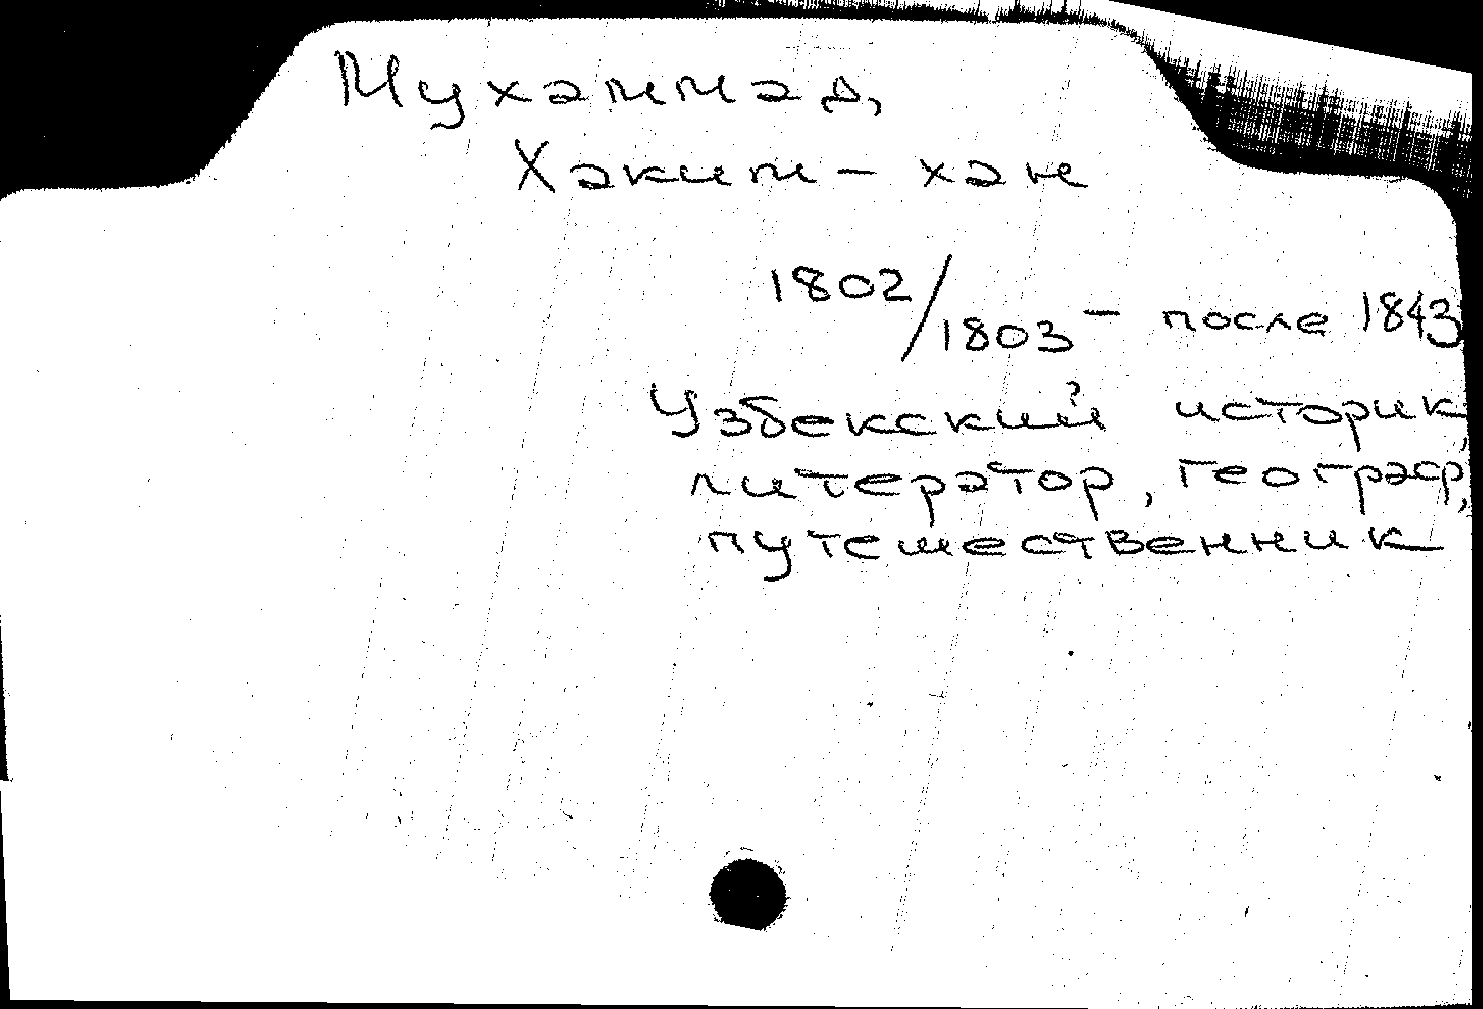 Мухаммад,
Хаким-хан
1802/1803 - после 1843
Узбекский историк,
литератор, географ,
путешественник